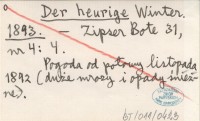 Der heurige Winter.
1893. — Zipser Bote 31,
nr 4: 4.
Pogoda od połowy listopada
1892 (duże mrozy i opady śnież-
ne).
bT/018/0423